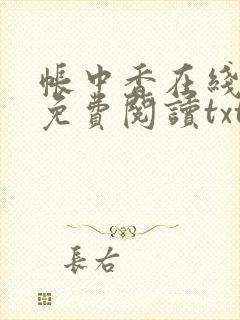 帳中香在綫
免費閱讀txt
長右